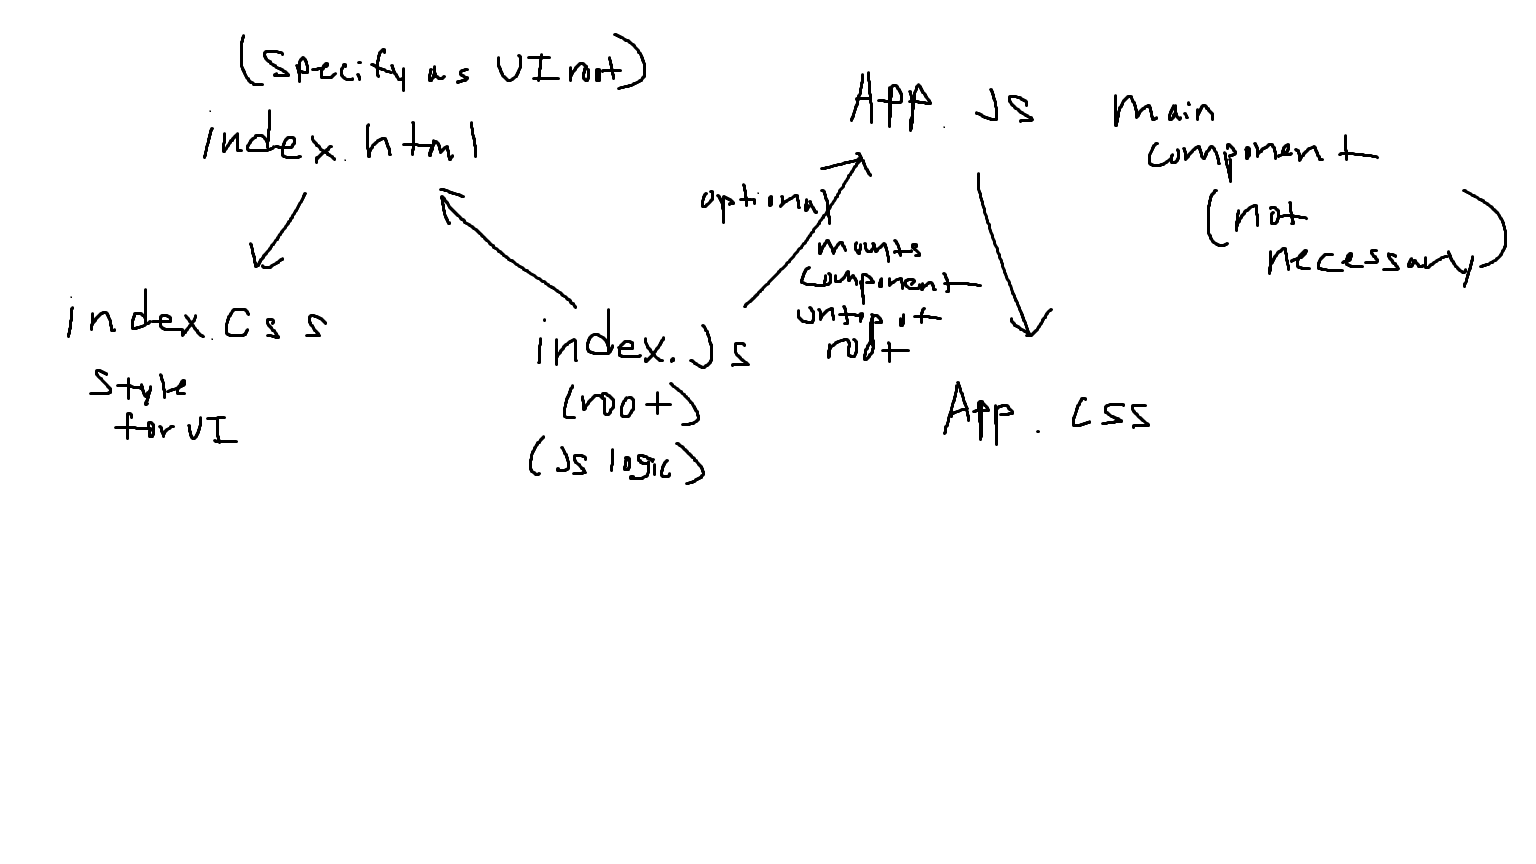 (Specify as UI root)
index.html
index.css
style
for UI
index.Js
(root)
(Js logic)
optional
mounts
component
ontop of
root
App.Js
main
component
(not
necessary)
App.css